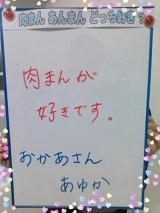 肉まん あんまん どっち好き?
肉まんが
好きです。
おかあさん
あゆか